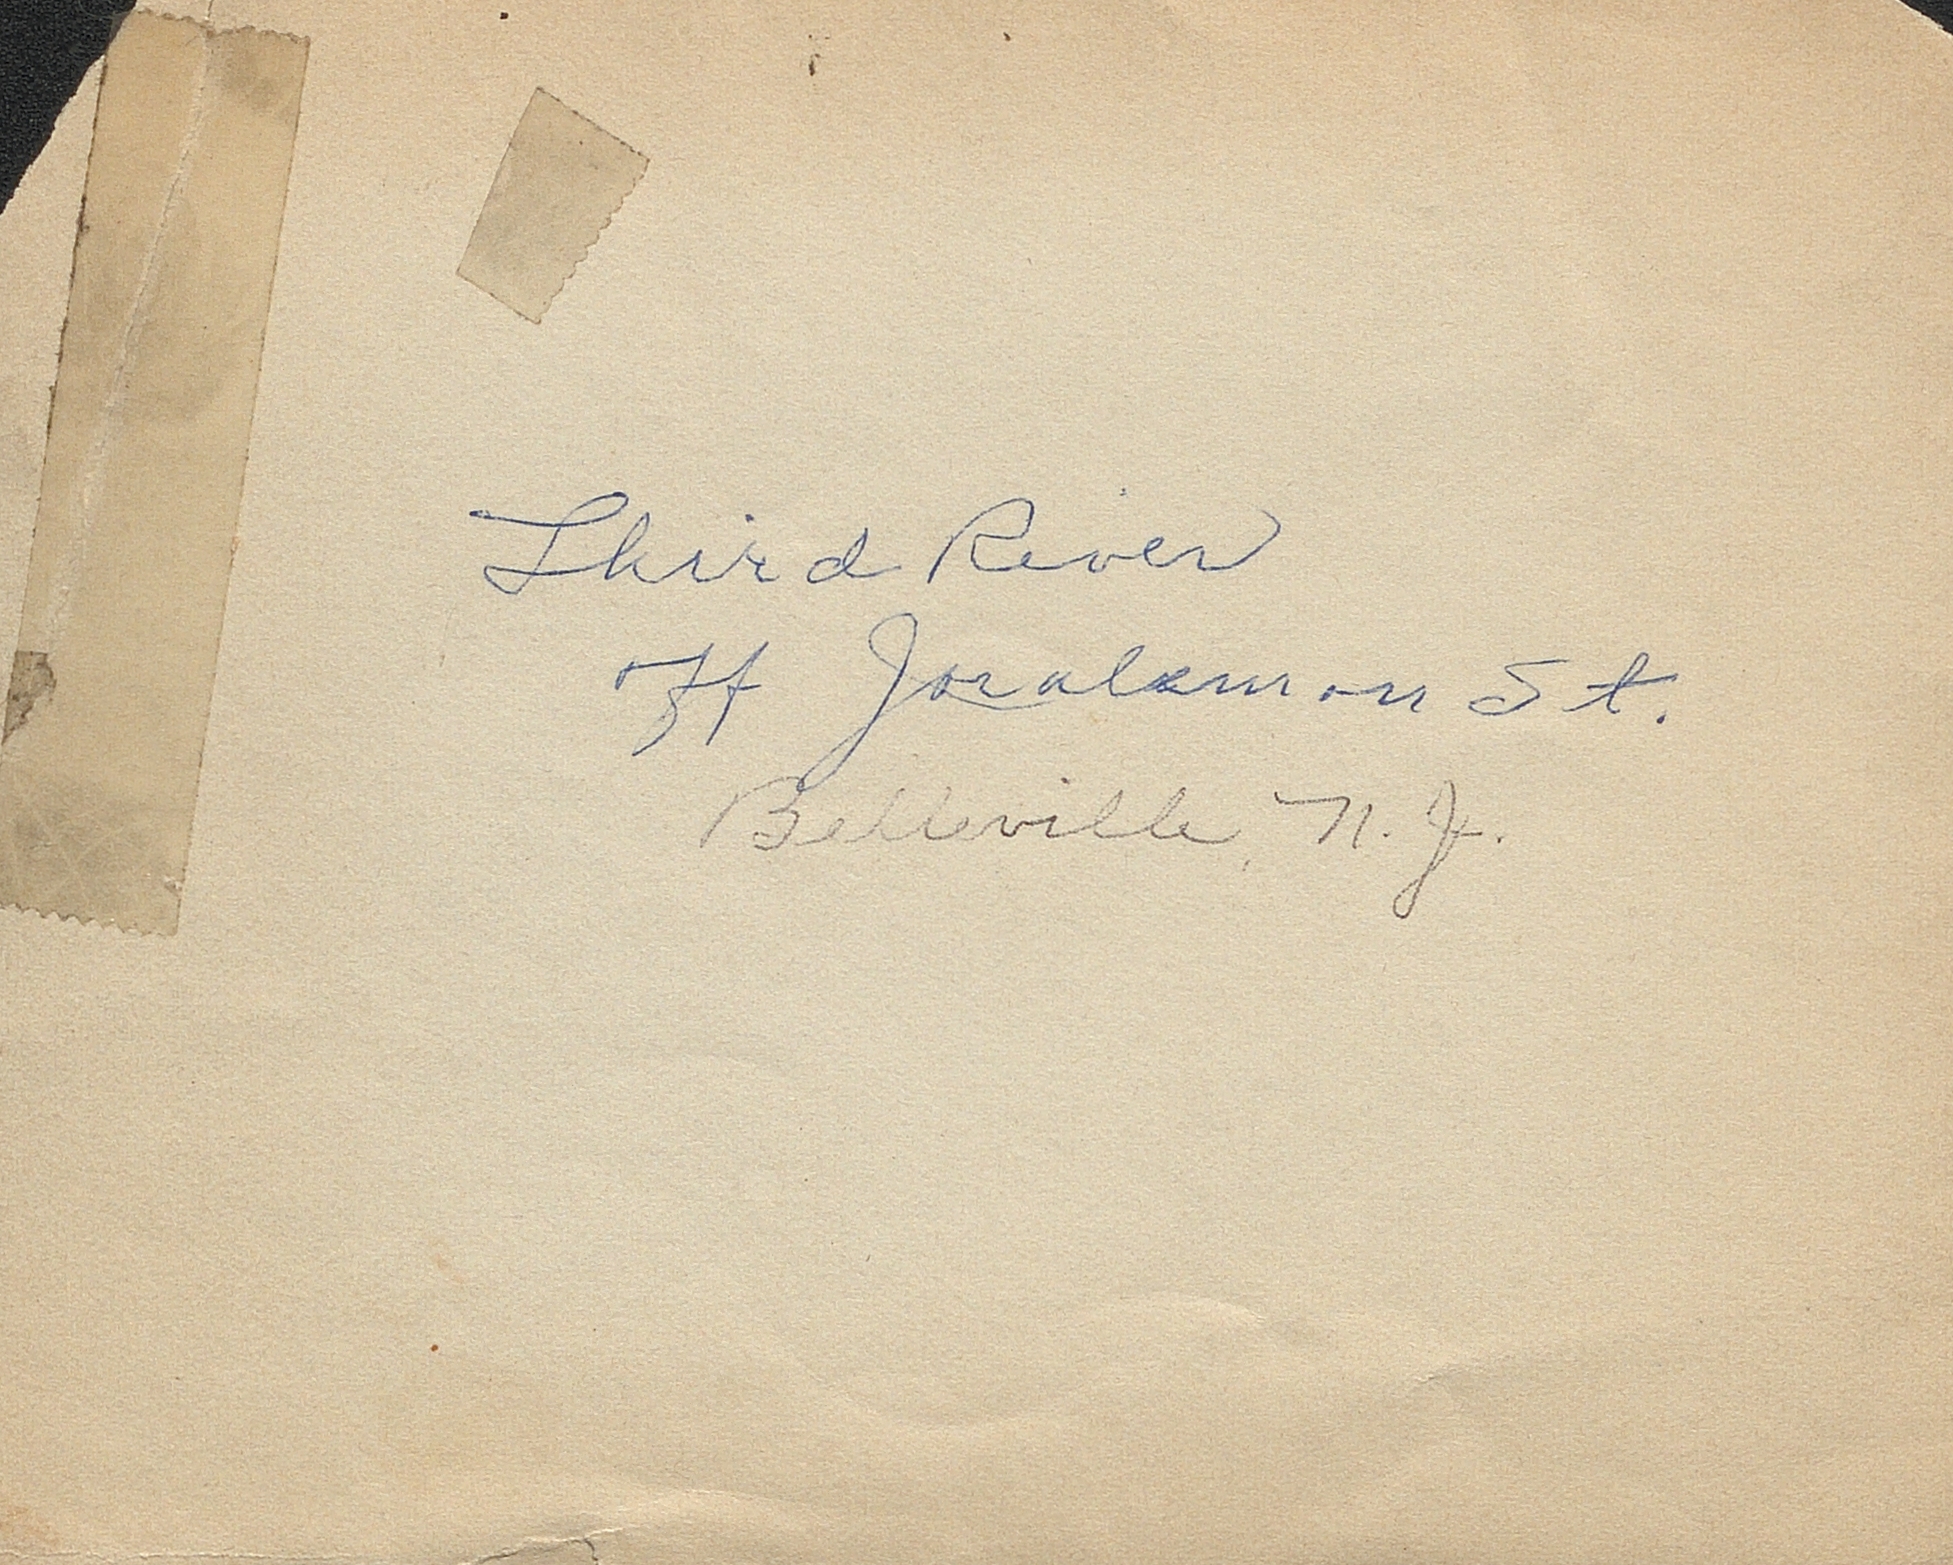 Third River
off Joralemon St.
Belleville, N. J.